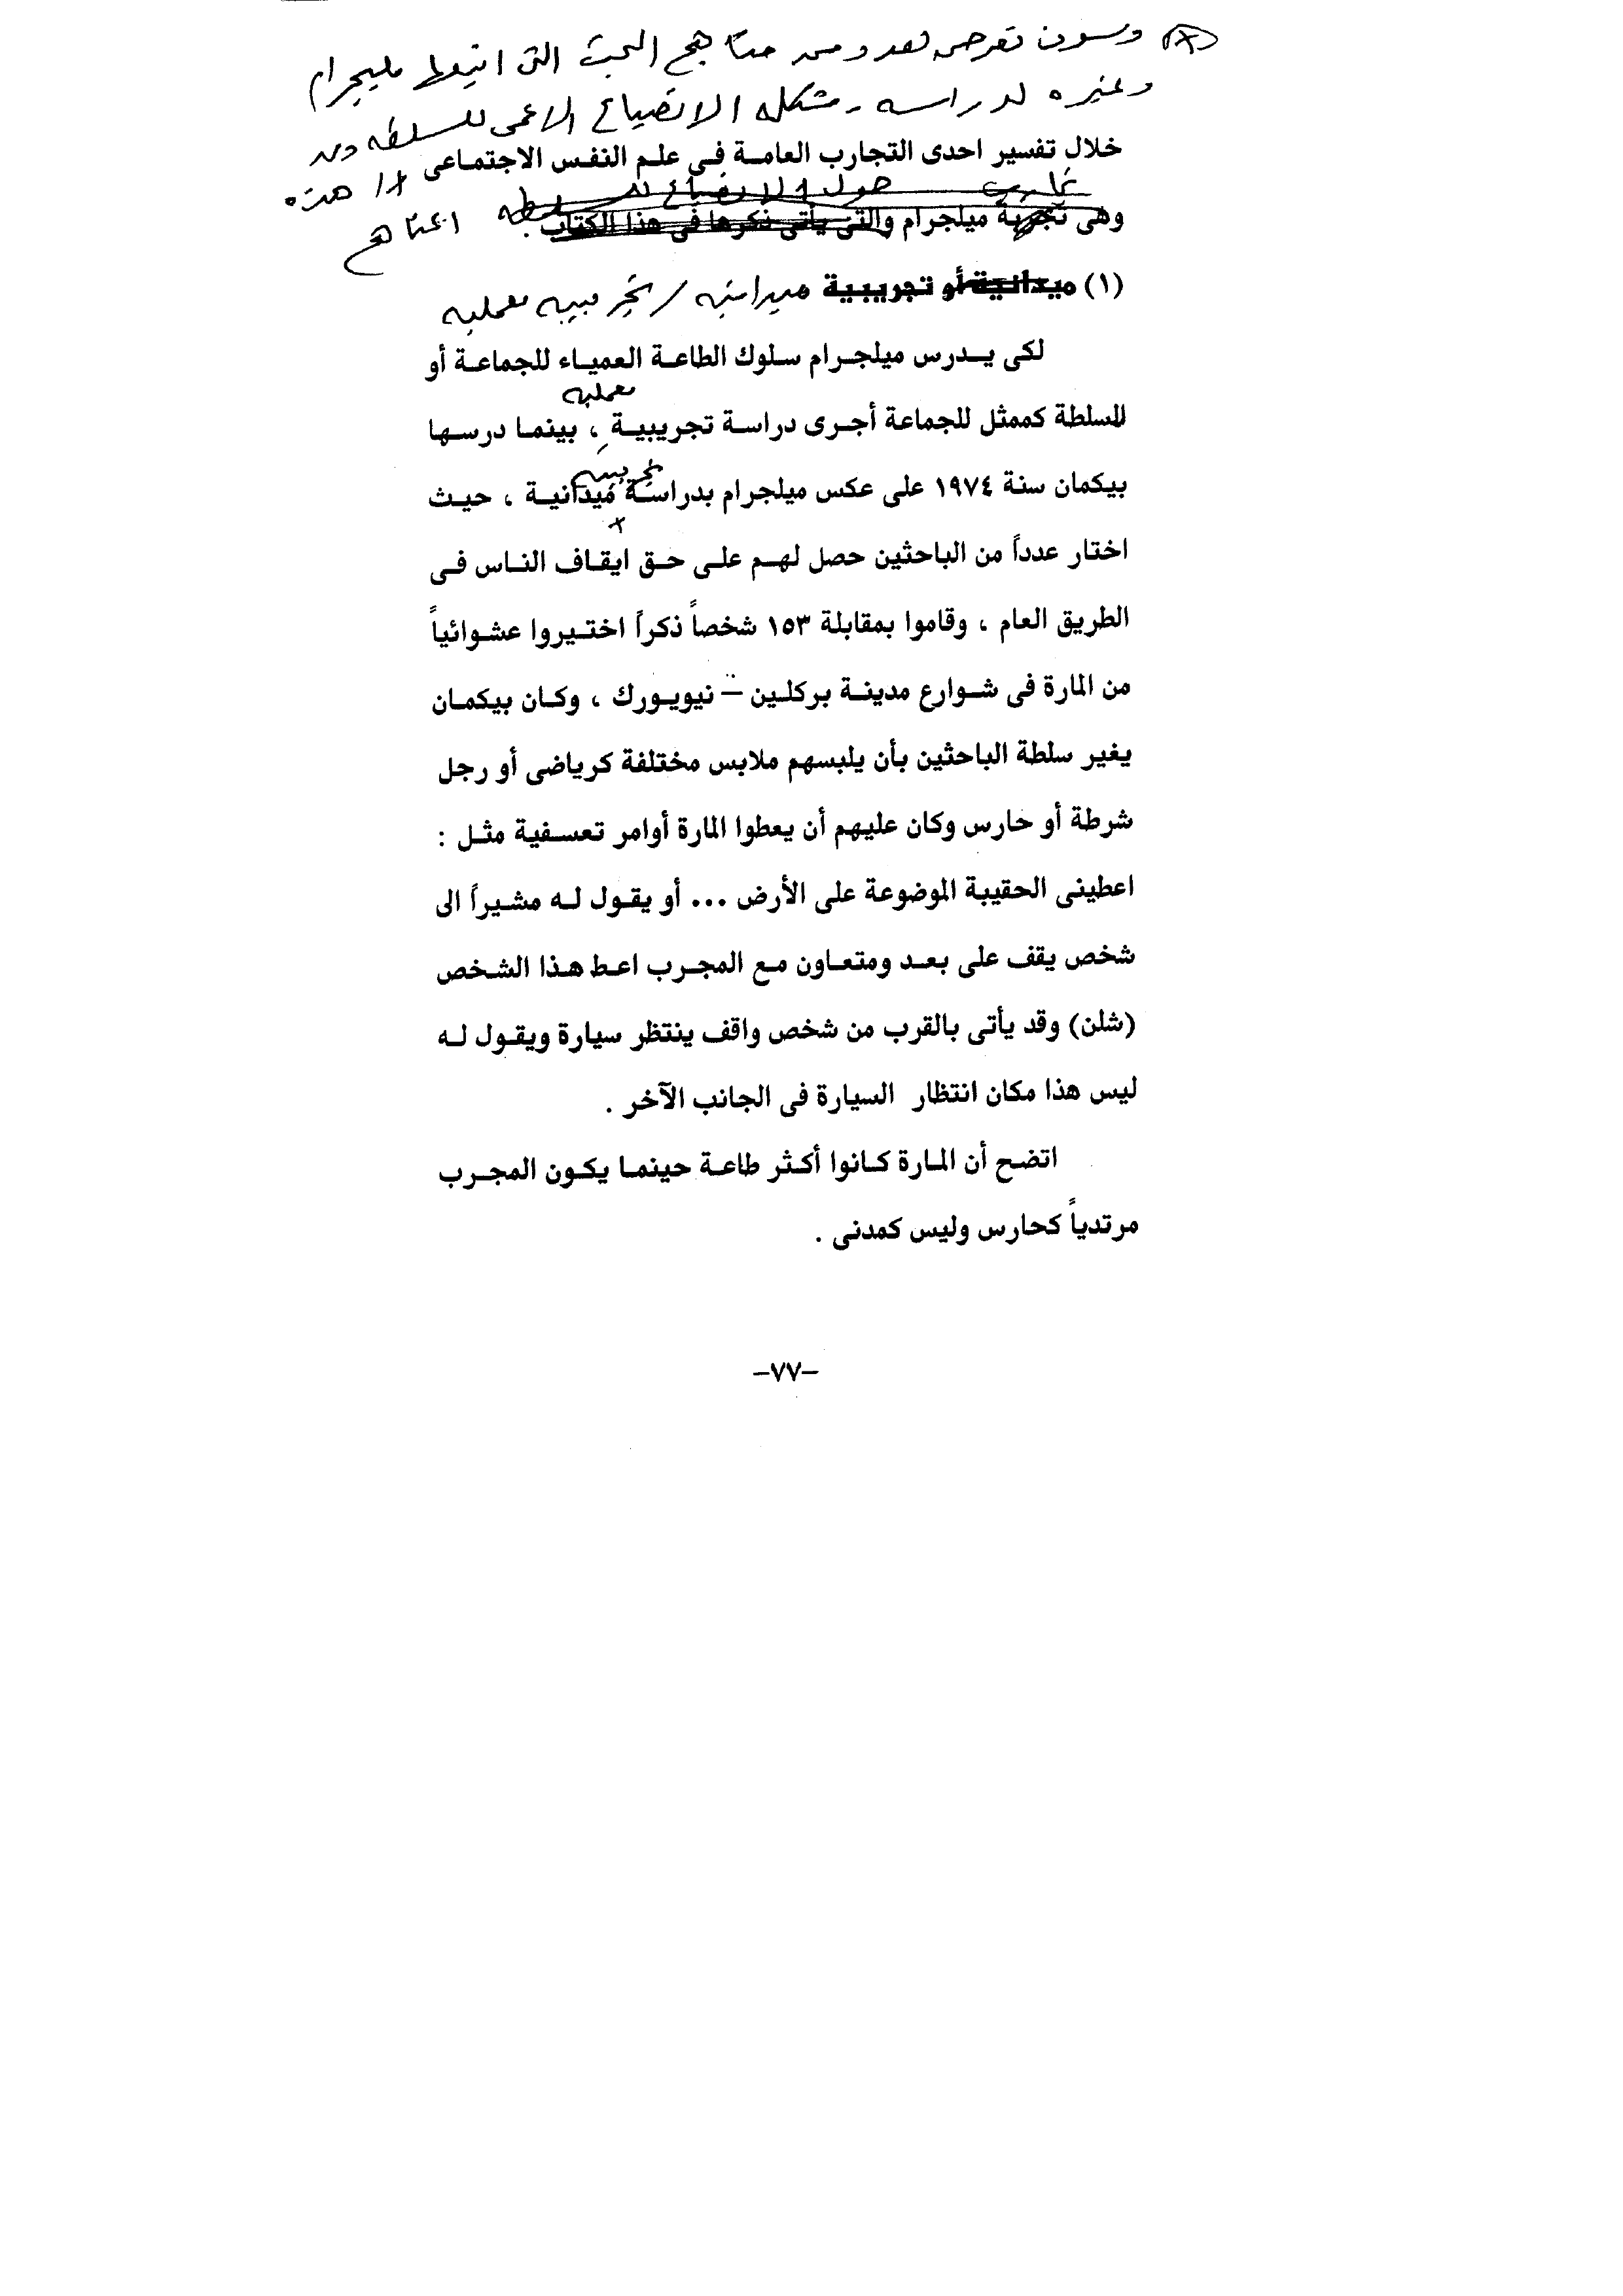 (×) وسوف نعرض لعدد من مناهج البحث التى اتبعها مليجرام
وغيره لدراسة مشكلة الانصياع الاعمى للسلطه ومن
خلال تفسير احدى التجارب العامة فى علم النفس الاجتماعى
هذه
تجارب حول الانصياع للسلطه
وهى تجربة ميلجرام والتى يأتى ذكرها فى هذا الكتاب .
المناهج
(١) ميدانية أو تجريبية ميدانيه / تجريبيه معمليه
لكى يدرس ميلجرام سلوك الطاعة العمياء للجماعة أو
معمليه
للسلطة كممثل للجماعة أجرى دراسة تجريبية ، بينما درسها
تجريبيه
بيكمان سنة ١٩٧٤ على عكس ميلجرام بدراسة ميدانية ، حيث
اختار عدداً من الباحثين حصل لهم على حق ايقاف الناس فى
الطريق العام ، وقاموا بمقابلة ١٥٣ شخصاً ذكراً اختيروا عشوائياً
من المارة فى شوارع مدينة بركلين – نيويورك ، وكان بيكمان
يغير سلطة الباحثين بأن يلبسهم ملابس مختلفة كرياضى أو رجل
شرطة أو حارس وكان عليهم أن يعطوا المارة أوامر تعسفية مثل :
اعطينى الحقيبة الموضوعة على الأرض ... أو يقول له مشيراً الى
شخص يقف على بعد ومتعاون مع المجرب اعط هذا الشخص
(شلن) وقد يأتى بالقرب من شخص واقف ينتظر سيارة ويقول له
ليس هذا مكان انتظار السيارة فى الجانب الآخر .
اتضح أن المارة كانوا أكثر طاعة حينما يكون المجرب
مرتدياً كحارس وليس كمدنى .
–٧٧–